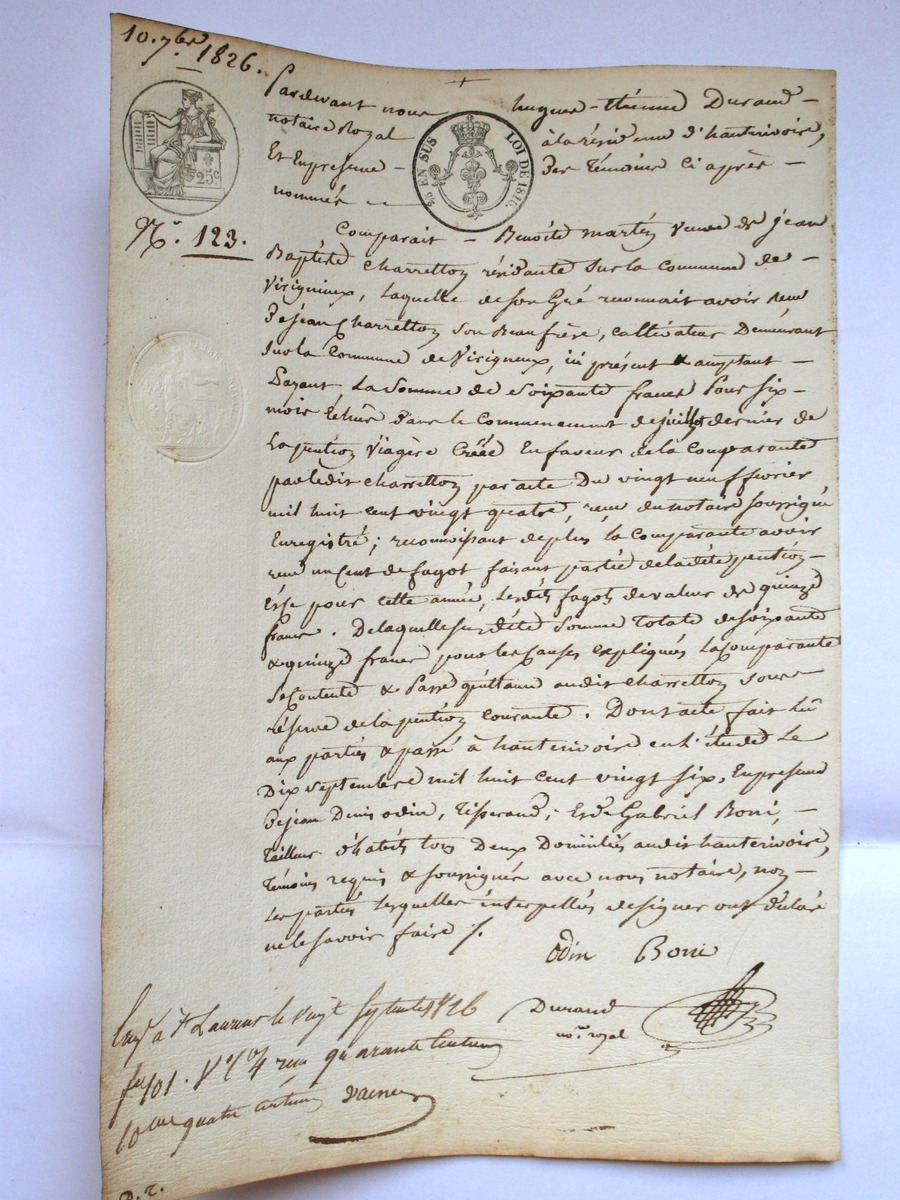 10. 7bre 1826.
Pardevant nous hugues-étienne Durand
notaire Royal à la résidence d'hauterivoire,
Et En presence Des Témoins Ci après
nommés
25 c
EN SUS LOI DE 1816.
No. 123.
Comparait Benoite martin Veuve de jean
Baptiste Charretton résidante Sur la Commune de
Virigneux, Laquelle de son Gré reconnait avoir reçu
De jean Charretton Son Beaufrère, cultivateur Demeurant
Sur la Commune de Virigneux, ici présent & acceptant
Payant La Somme de Soixante francs Pour six
mois Echus Dans le Commencement de juillet dernier de
La pention Viagère Créée En faveur de la Comparante
par ledit Charretton par acte Du vingt neuf fevrier
mil huit cent vingt quatre, reçu du notaire soussigné
Enregistré; reconnoissant de plus la Comparante avoir
reçu un Cent de fagot faisant partie de la dite pention
pour cette année, Lesdits fagots de valeur de quinze
francs. De laquelle susdite Somme Totale de soixante
& quinze francs pour les Causes Expliqués La Comparante
Se Contente & Passe quittance audit Charretton sous
réserve de la pention Courante. Dont acte fait Lu
aux parties & passé à hauterivoire en L'étude Le
Dix septembre mil huit cent vingt six, En presence
De jean Denis odin, Tisserand, Et de Gabriel Boni,
Tailleur d'habits tous Deux Domiciliés audit hauterivoire,
Témoins requis & soussignés avec nous notaire, non
Les parties Lesquelles interpellés de signer ont déclaré
ne le savoir faire /.
Odin Boni
Durand
nore royal
Enregé à St Laurent le vingt septembre 1826
fo 101. Vo Co 4 reçu quarante centimes
10eme quatre centimes